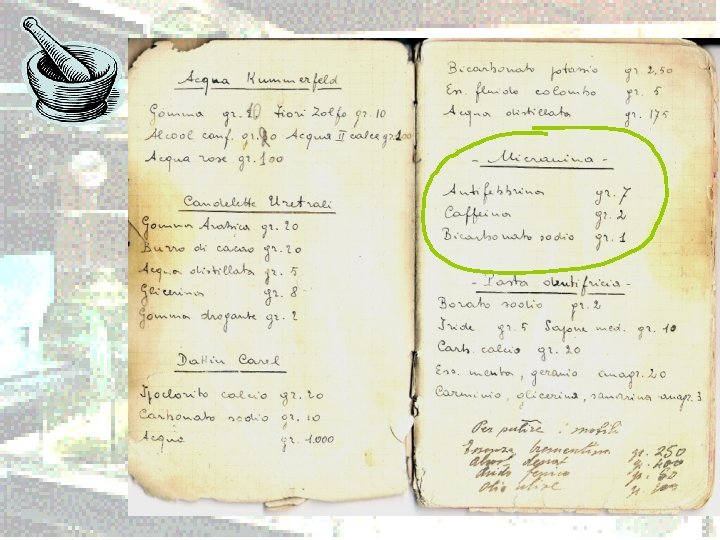 Acqua Kummerfeld
Gomma gr. Fiori Zolfo gr. 10
Alcool canf. gr. Acqua II calce gr.
Acqua rose gr. 100
Candelette Uretrali
Gomma Arabica gr. 20
Burro di cacao gr. 20
Acqua distillata gr. 5
Glicerina gr. 8
Gomma dragante gr. 2
Carel
Ipoclorito calcio gr. 20
Carbonato sodio gr. 10
Acqua gr. 1.000
Bicarbonato potassio gr. 2,50
Es. fluido colombo gr. 5
Acqua distillata gr. 175
- Micranina -
Antifebbrina gr. 7
Caffeina gr. 2
Bicarbonato sodio gr. 1
- Pasta dentifricia -
Borato sodio gr. 2
Iride gr. 5 Sapone med. gr. 10
Carb. calcio gr. 20
Ess. menta, geranio ana gr. 20
Carminio, glicerina, ana gr. 3
Per pulire i mobili
Essenza trementina gr. 250
gr. 400
Acido fenico gr.
Olio gr.